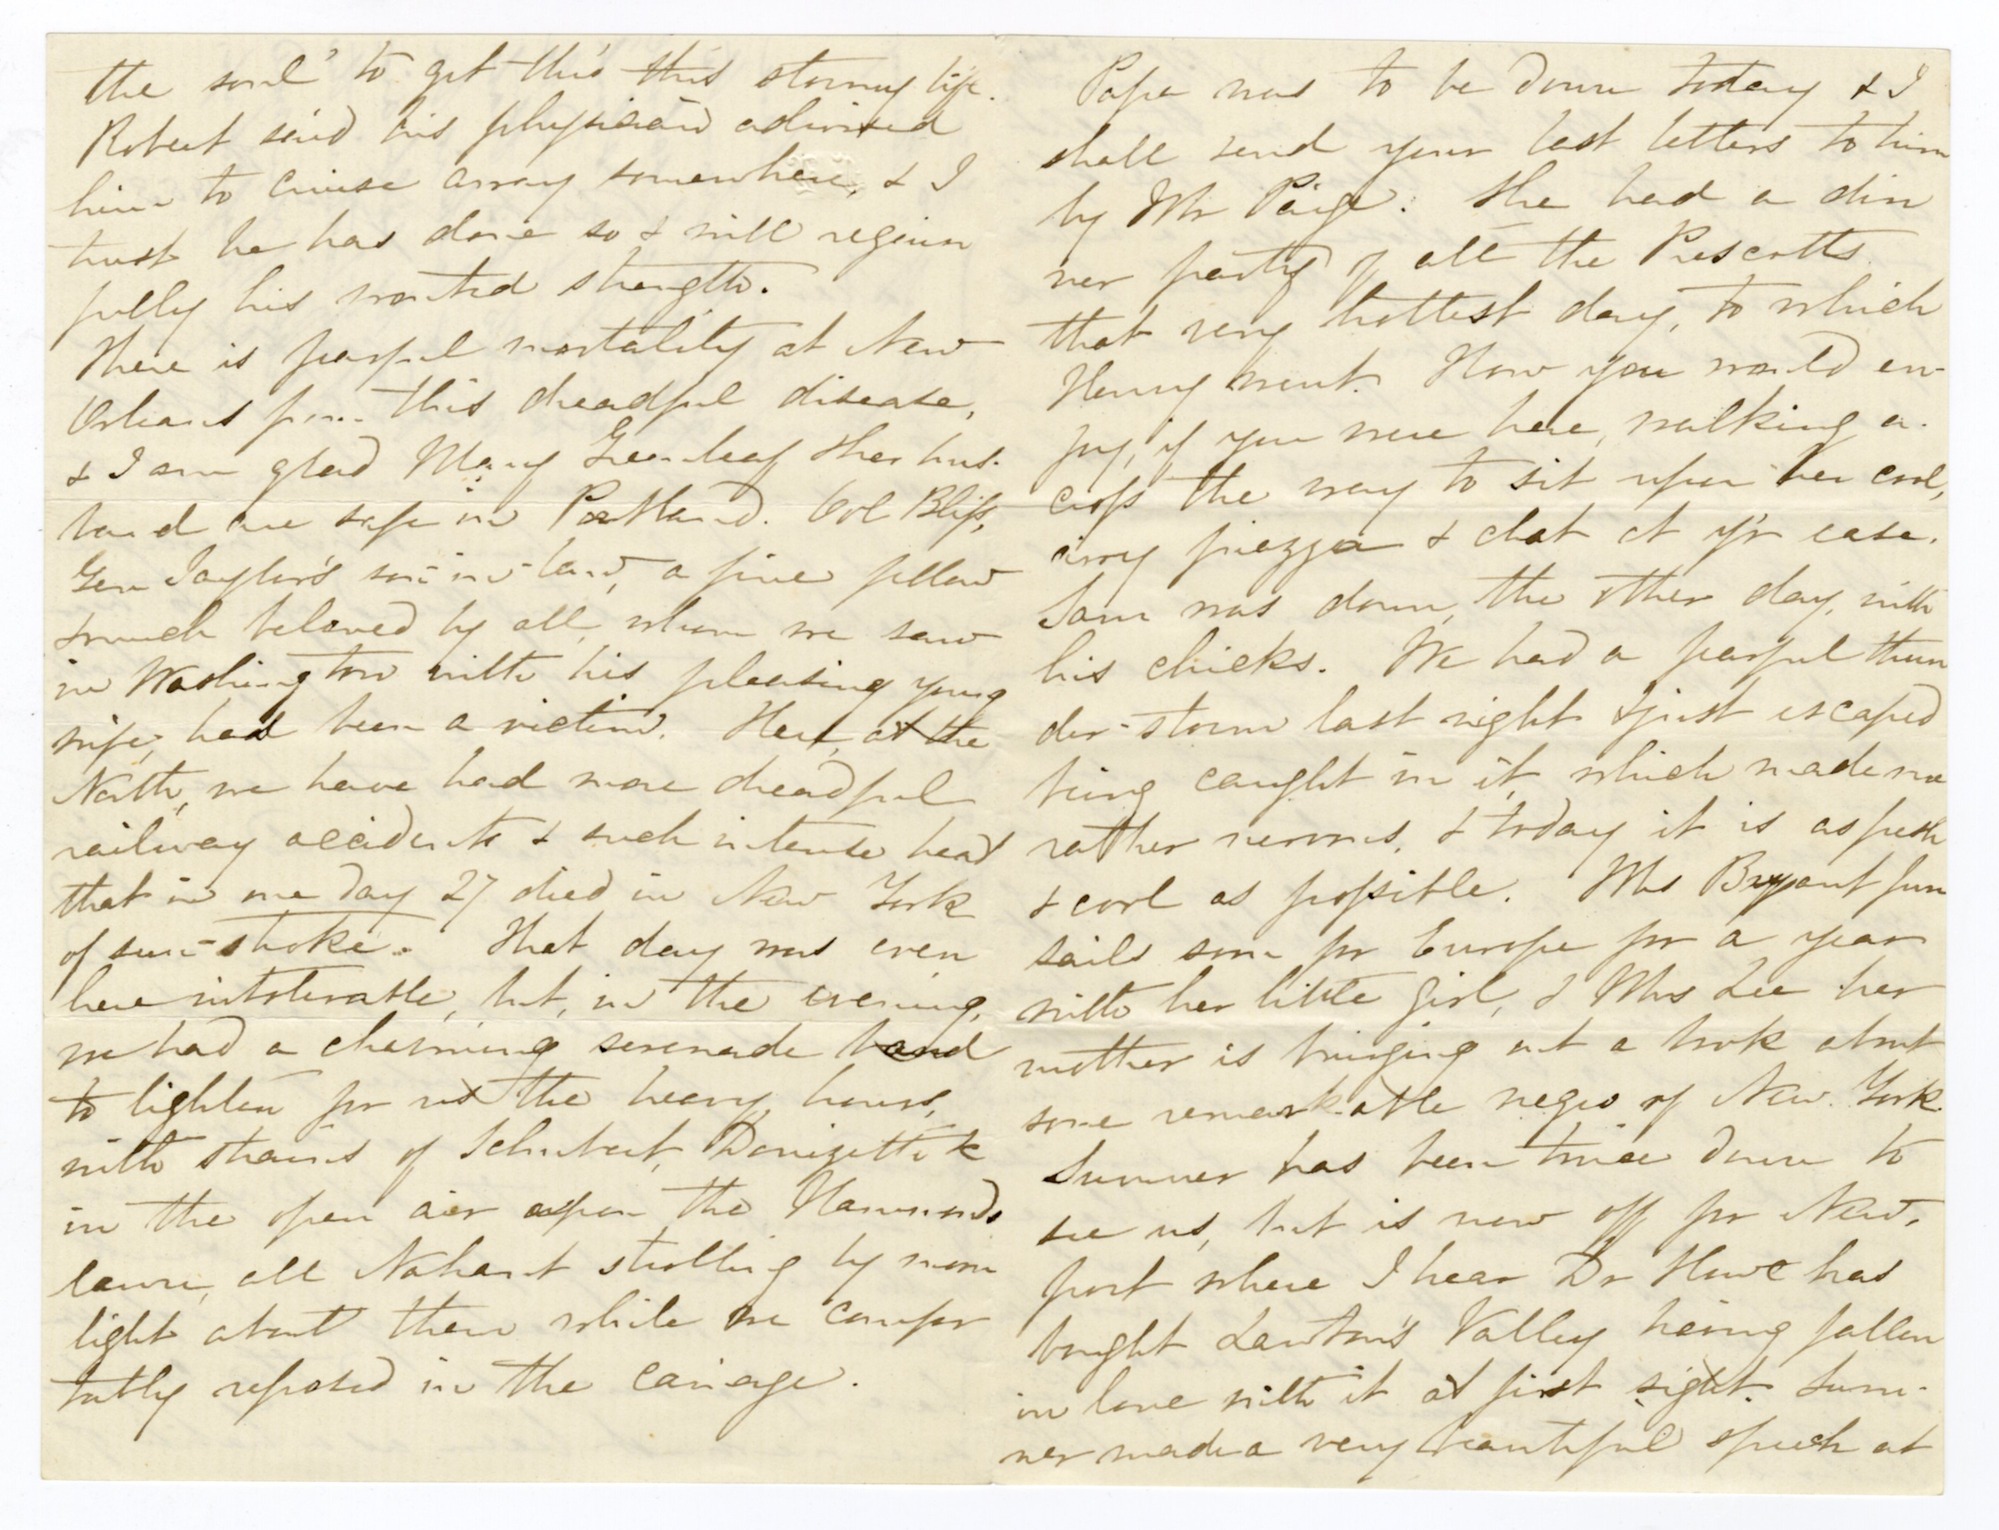 the soul" to get thro' this stormy life.
Robert said his physician advised
him to cruise away somewhere, & I
trust he has done so & will regain
fully his wonted strength.
There is fearful mortality at New
Orleans from this dreadful disease,
& I am glad Mary Greenleaf & her hus-
band are safe in Portland. Col Bliss,
Gen Taylor's son-in-law, a fine fellow
& much beloved by all, whom we saw
in Washington with his pleasing young
wife, had been a victim. Here, at the
North, we have had more dreadful
railway accidents & such intense heat
that in one day 27 died in New York
of sun-stroke. That day was even
here intolerable, but, in the evening,
we had a charming serenade band
to lighten for us the heavy hours,
with strains of Schubert, Donizetti &
in the open air upon the Hammonds
lawn, all Nahant strolling by moon
light about them while we comfor
tably reposed in the carriage.
Papa was to be down today & I
shall send your last letters to him
by Mr Paige. She had a din
ner party of all the Prescotts
that very hottest day, to which
Henry went. How you would en-
joy, if you were here, walking a-
cross the way to sit upon her cool,
airy piazza & chat at yr ease.
Sam was down, the other day, with
his chicks. We had a fearful thun
der-storm last night & just escaped
being caught in it, which made me
rather nervous, & today it is as fresh
& cool as possible. Mrs Bryant
sails soon for Europe for a year
with her little girl, & Mrs Lee her
mother is bringing out a book about
some remarkable negro of New York.
Sumner has been twice down to
see us, but is now off for New-
port where I hear Dr Howe has
bought Lawton's Valley having fallen
in love with it at first sight. Sum-
ner made a very beautiful speech at